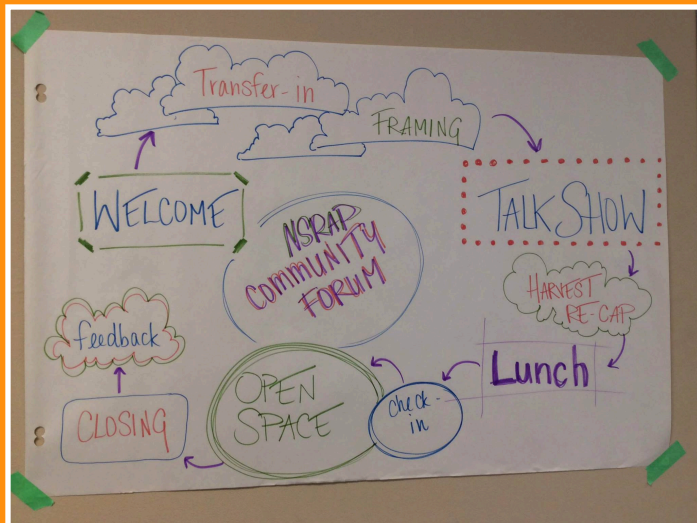 WELCOME
Transfer-in
FRAMING
TALK SHOW
HARVEST
RE-CAP
Lunch
check-
in
OPEN
SPACE
CLOSING
feedback
NSRAP
COMMUNITY
FORUM